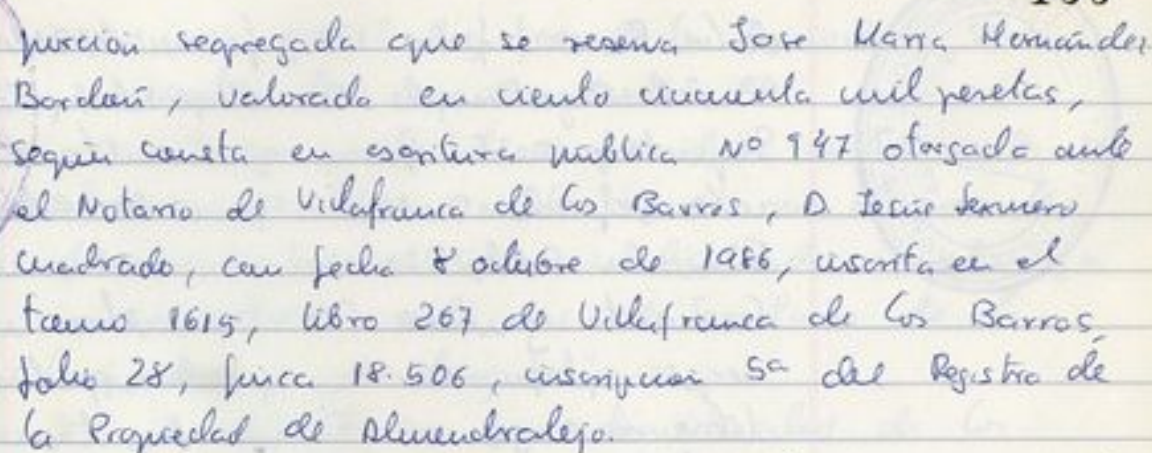 porción segregada que se reserva Jose Maria Hernández
Bordarí, valorada en ciento cincuenta mil pesetas,
según consta en escritura pública Nº 947 otorgada ante
el Notario de Villafranca de los Barros, D. Jesús
Cuadrado, con fecha 8 octubre de 1986, inscrita en el
tomo 1615, libro 267 de Villafranca de los Barros,
folio 28, finca 18.506, inscripcion 5ª del Registro de
la Propiedad de Almendralejo.